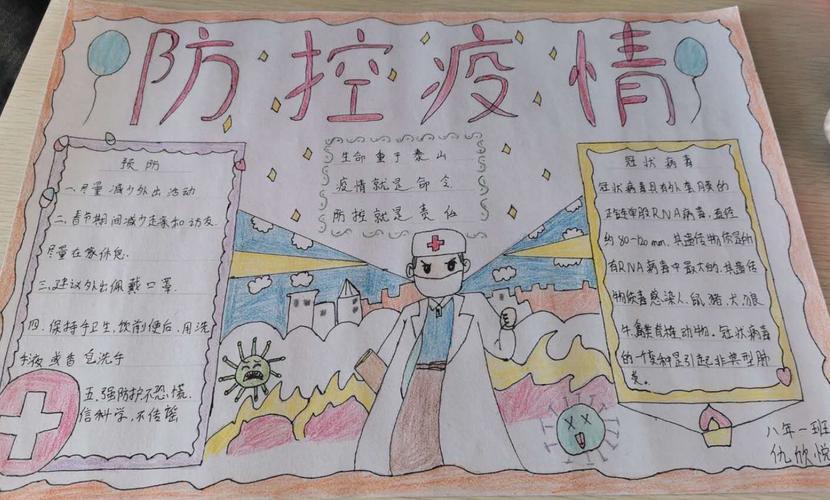 防控疫情
预防
一、尽量减少外出活动
二、春节期间减少走亲和访友
尽量在家休息.
三、建议外出佩戴口罩.
四、保持手卫生,饮前便后,用洗
手液或香皂洗手
五、强防护不恐慌,
信科学,不传谣
生命重于泰山
疫情就是命令
防控就是责任
冠状病毒
冠状病毒具有外套膜的
正链单股RNA病毒,直径
约80-120nm,其遗传物质是所
有RNA病毒中最大的,其遗传
物质感染人、鼠、猪、犬、狼
牛、禽类脊椎动物。冠状病毒
的一个变种是引起非典型肺
炎。
八年一班
仇欣悦